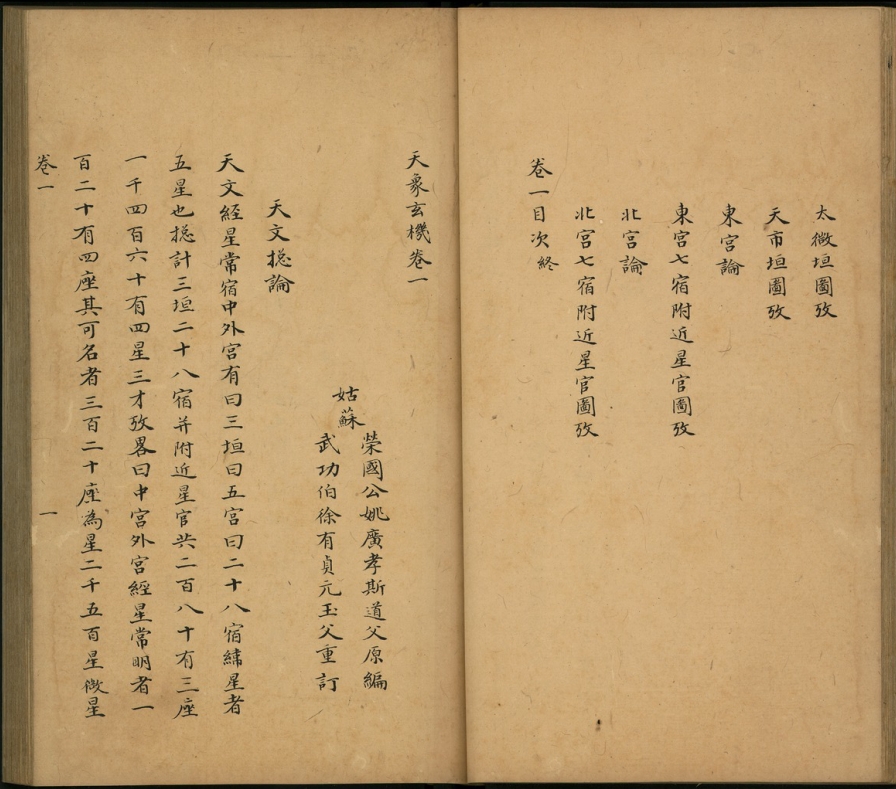 太微垣圖攷
天市垣圖攷
東宮論
東宮七宿附近星官圖攷
北宮論
北宮七宿附近星官圖攷
卷一目次終
天象玄機卷一
姑蘇
榮國公姚廣孝斯道父原編
武功伯徐有貞元玉父重訂
天文摠論
天文經星常宿中外宮有曰三垣曰五宮曰二十八宿緯星者
五星也摠計三垣二十八宿并附近星官共二百八十有三座
一千四百六十有四星三才攷畧曰中宮外宮經星常明者一
百二十有四座其可名者三百二十座為星二千五百星微星
卷一
一